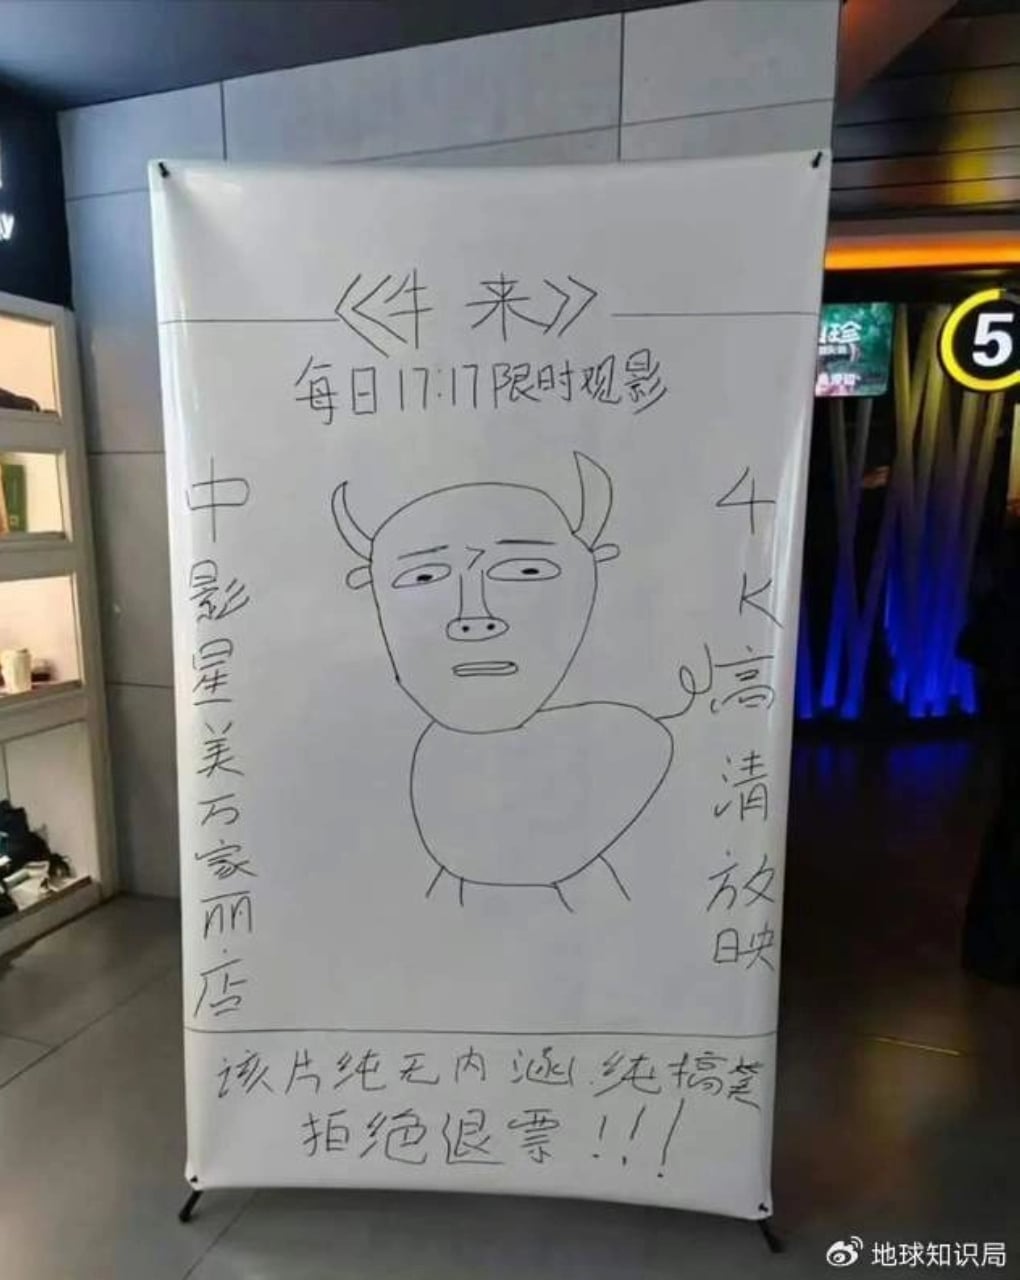 《牛来》
每日17:17限时观影
中影星美万家丽店
4K高清放映
该片纯无内涵.纯搞笑
拒绝退票!!!
5
地球知识局